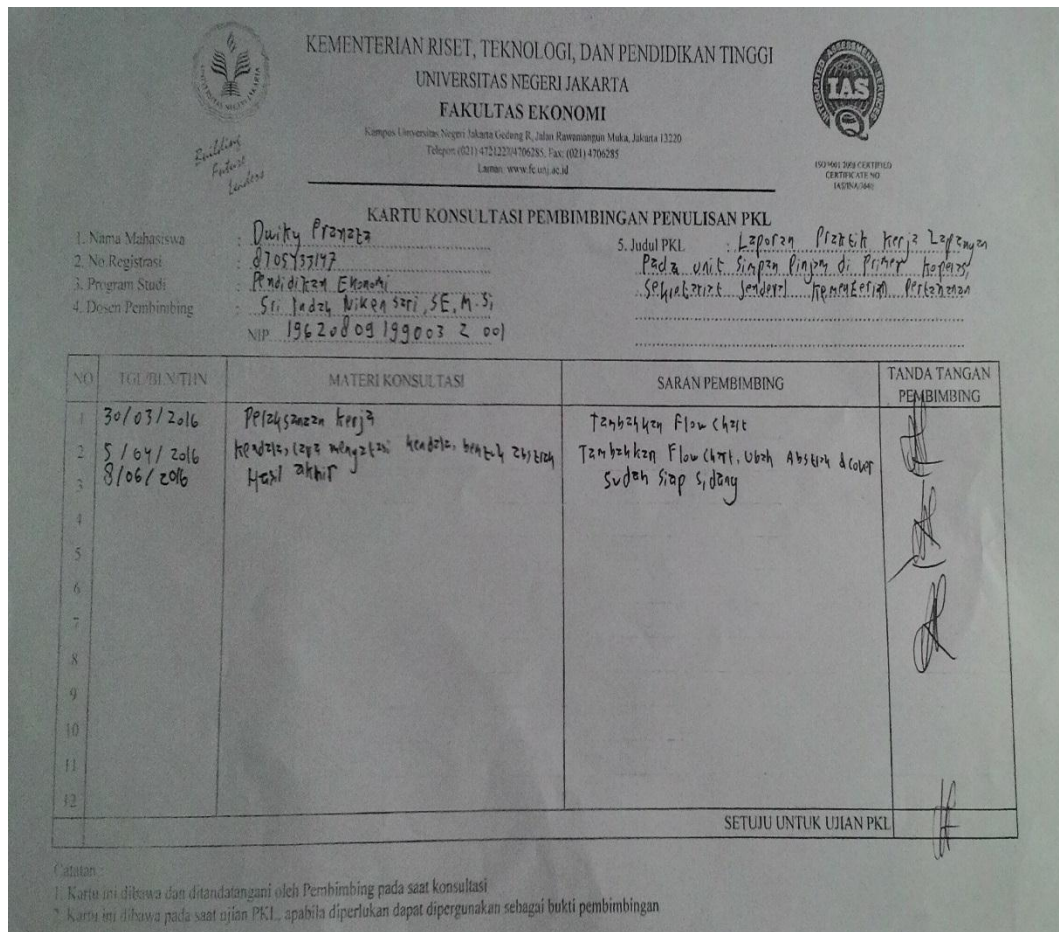 KEMENTERIAN RISET, TEKNOLOGI, DAN PENDIDIKAN TINGGI
UNIVERSITAS NEGERI JAKARTA
FAKULTAS EKONOMI
Kampus Universitas Negeri Jakarta Gedung R, Jalan Rawamangun Muka, Jakarta 13220
Telepon (021) 4721227/4706285, Fax: (021) 4706285
Laman: www.fe.unj.ac.id
UNIVERSITAS NEGERI JAKARTA
Building
Future
Leaders
INTEGRATED ASSESSMENT SERVICES
IAS
ISO 9001:2008 CERTIFIED
CERTIFICATE NO
KARTU KONSULTASI PEMBIMBINGAN PENULISAN PKL
1. Nama Mahasiswa : Dwiky Pranata
2. No.Registrasi : 8105933147
3. Program Studi : Pendidikan Ekonomi
4. Dosen Pembimbing : Sri Indah Nikensari, SE, M.Si
NIP 19620809 199003 2 001
5. Judul PKL : Laporan Praktik Kerja Lapangan
Pada unit Simpan Pinjam di Primer Koperasi
Sekretariat Jenderal Kementerian Pertahanan
NO TGL/BLN/THN MATERI KONSULTASI SARAN PEMBIMBING TANDA TANGAN PEMBIMBING
1 30/03/2016 Pelaksanaan kerja Tambahkan Flow Chart
2 5/04/2016 Kendala, cara mengatasi kendala, bentuk abstrak Tambahkan Flow Chart, Ubah Abstrak & cover
3 8/06/2016 Hasil akhir Sudah siap sidang
4
5
6
7
8
9
10
11
12
SETUJU UNTUK UJIAN PKL
Catatan :
1. Kartu ini dibawa dan ditandatangani oleh Pembimbing pada saat konsultasi
2. Kartu ini dibawa pada saat ujian PKL, apabila diperlukan dapat dipergunakan sebagai bukti pembimbingan